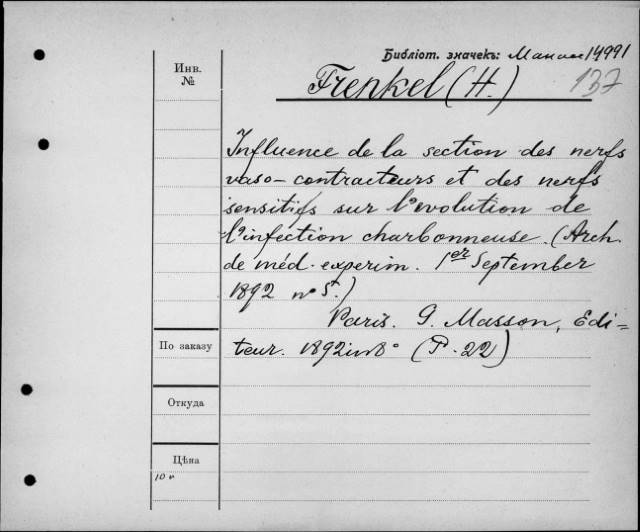 Библіот. значекъ: 14991
Инв.
№
Frenkel (H.)
137
Influence de la section des nerfs
vaso-contracteurs et des nerfs
sensitifs sur l'evolution de
l'infection charbonneuse. (Arch.
de méd. experim. 1er September
1892 no 5.)
Paris. G. Masson, Edi-
По заказу
teur. 1892 in 8° (P. 22)
Откуда
Цѣна